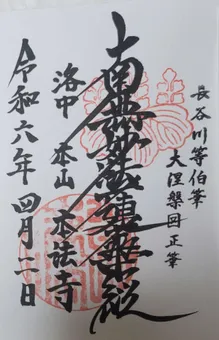 長谷川等伯筆
大涅槃図正筆
南無妙法蓮華経
洛中 本山 本法寺
令和六年 四月二日